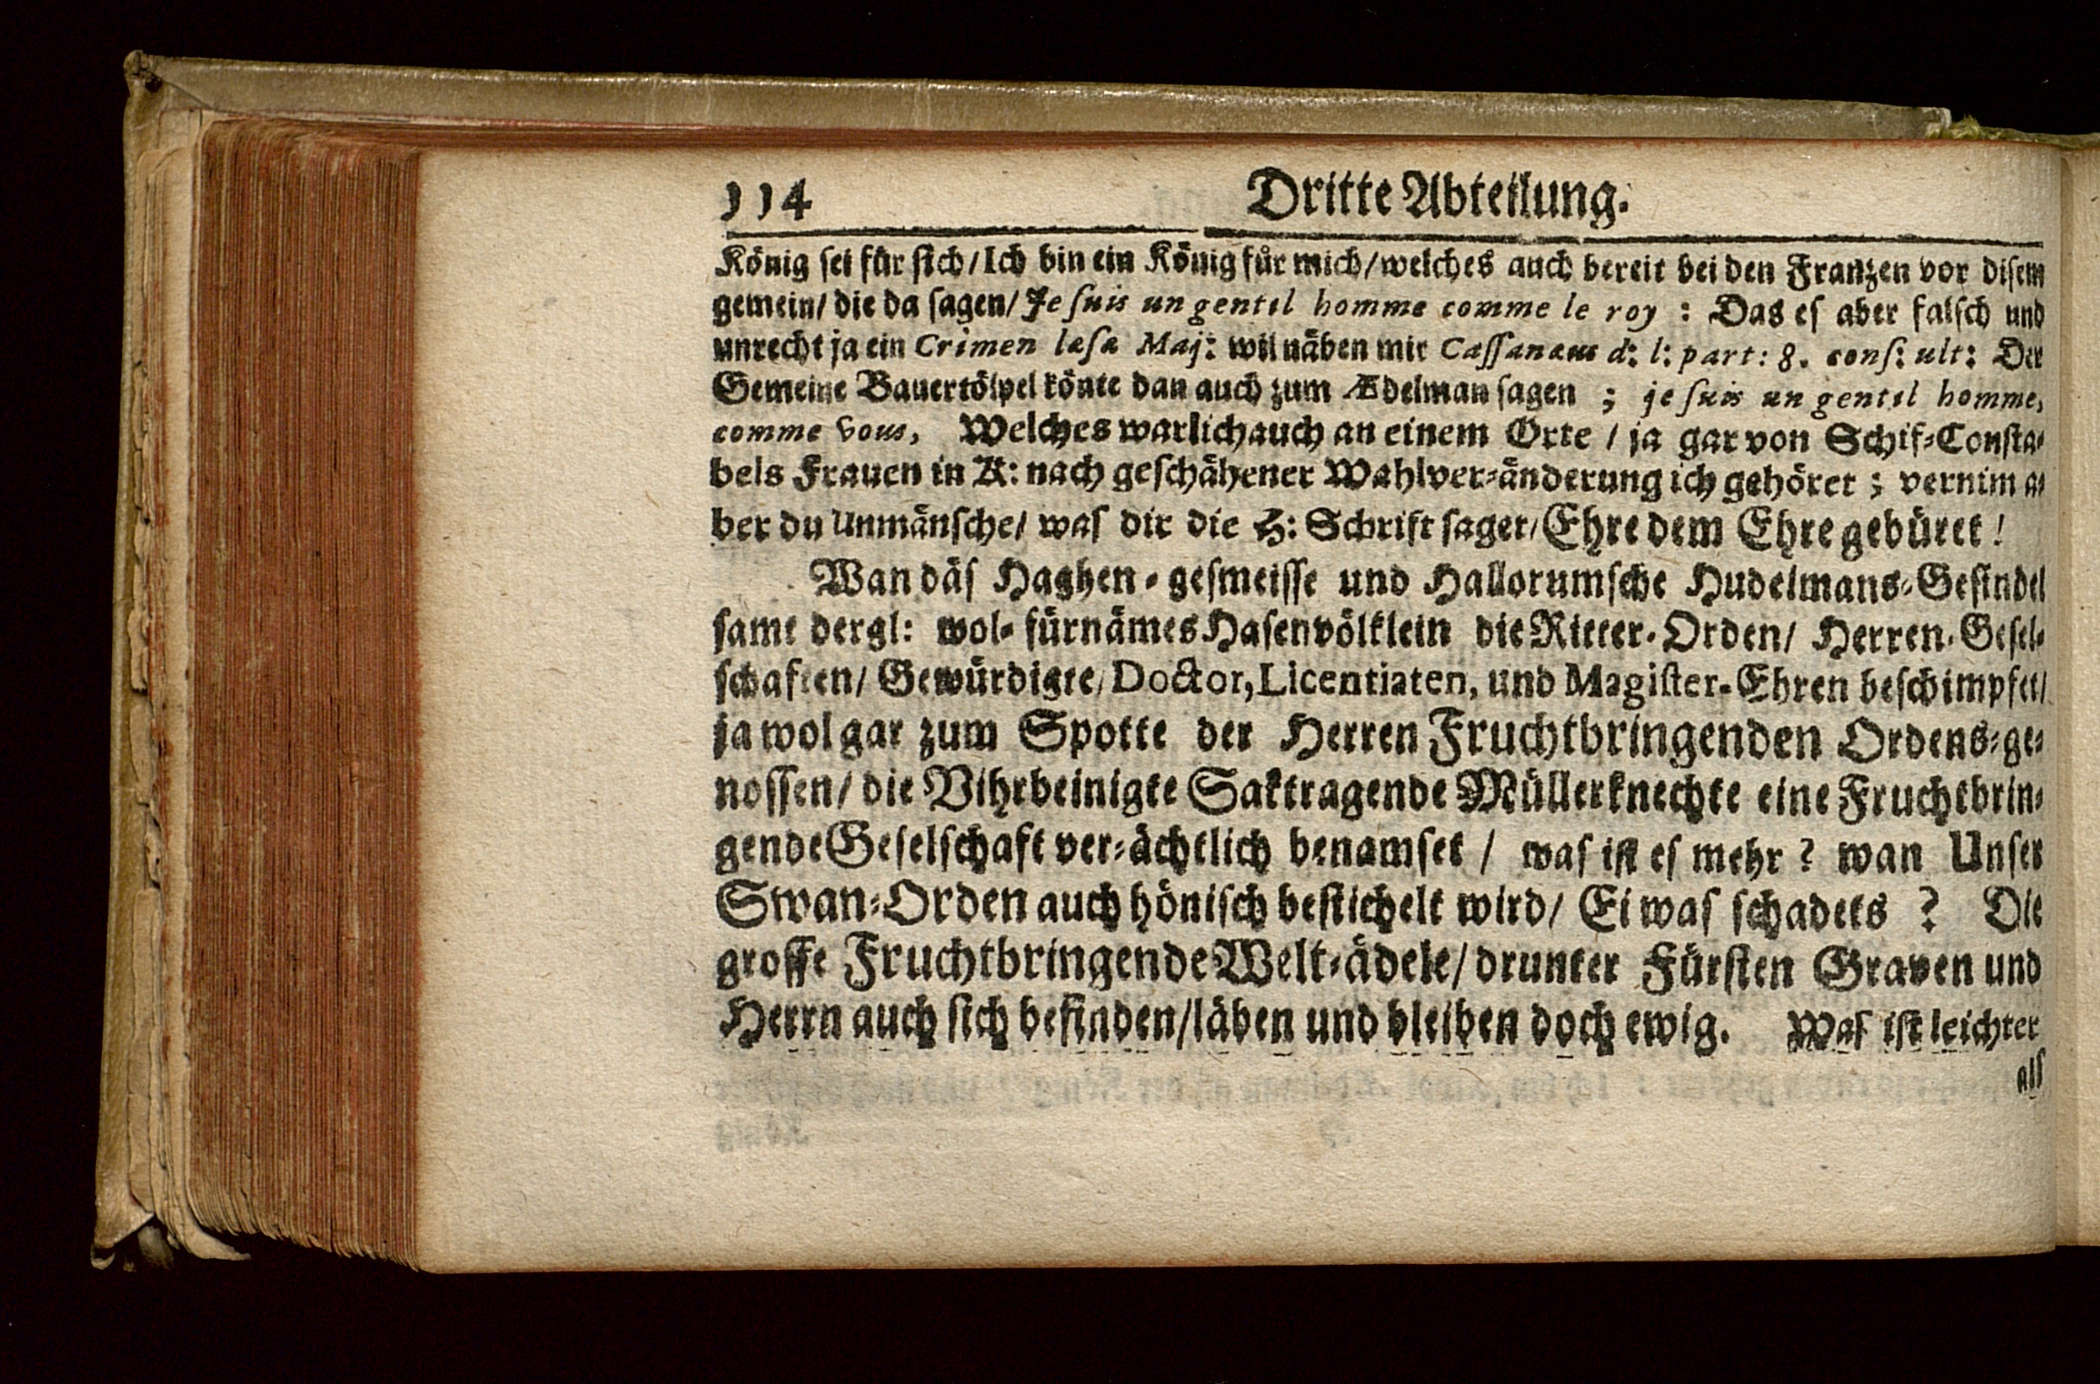 114 Dritte Abteilung.
König sei für sich/Ich bin ein König für mich/welches auch bereit bei den Franzen vor disem
gemein/ die da sagen/ Je suis un gentil homme comme le roy : Das es aber falsch und
unrecht ja ein Crimen læsæ Maj: wil näben mir Cassanæus d: l: part: 8. cons: ult: Der
Gemeine Bauertölpel könte dan auch zum Ædelman sagen ; je suis un gentil homme,
comme vous, Welches warlich auch an einem Orte / ja gar von Schif-Consta-
bels Frauen in A: nach geschähener Wahlver-änderung ich gehöret ; vernim a-
ber du Unmänsche/ was dir die H: Schrift saget/ Ehre dem Ehre gebüret !
Wan däs Haghen-gesmeisse und Hallorumsche Hudelmans-Gesindel
samt dergl: wol-fürnämes Hasenvölklein die Ritter-Orden/ Herren-Gesel-
schaften/ Gewürdigte/ Doctor, Licentiaten, und Magister-Ehren beschimpfet/
ja wol gar zum Spotte der Herren Fruchtbringenden Ordens-ge-
nossen/ die Vihrbeinigte Saktragende Müllerknechte eine Fruchtbrin-
gende Geselschaft ver-ächtlich benamset / was ist es mehr ? wan Unser
Swan-Orden auch hönisch bestichelt wird/ Ei was schadets ? Die
grosse Fruchtbringende Welt-ädele/ drunter Fürsten Graven und
Herrn auch sich befinden/läben und bleiben doch ewig. Was ist leichter
als